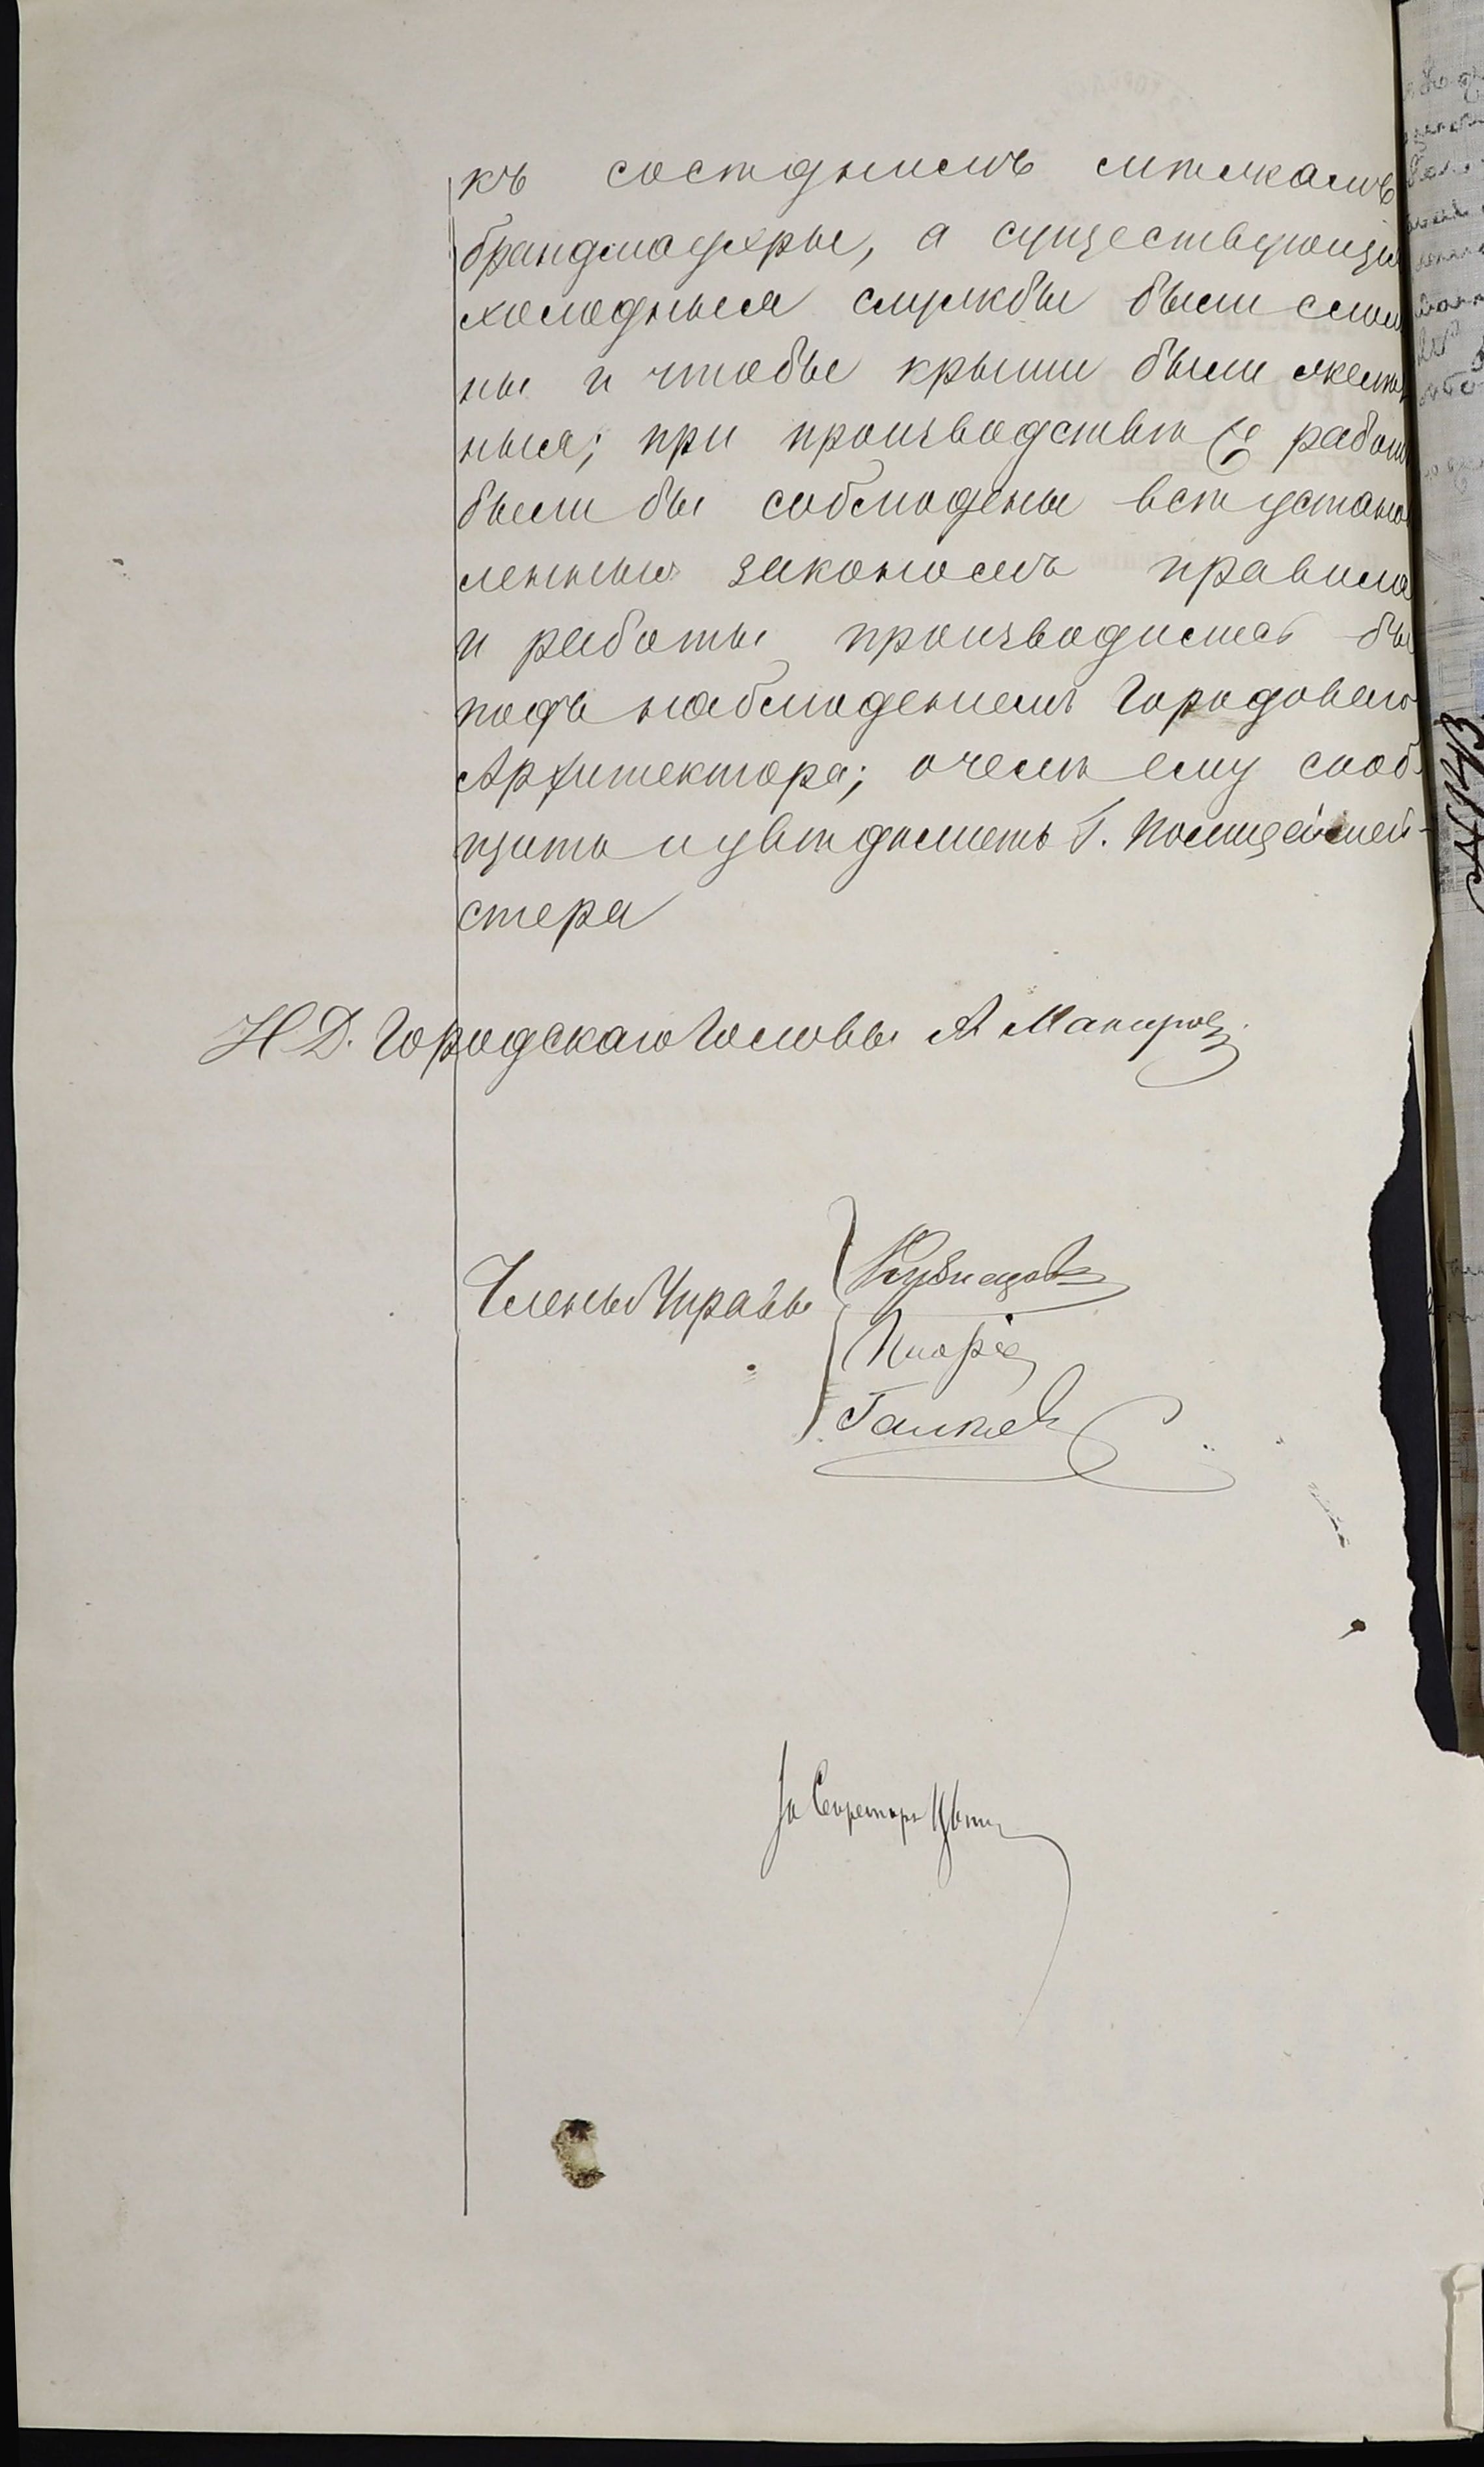 къ сосѣднимъ мѣжкамъ
брандмауеры, а существующія
холодныя службы были слом
ны и чтобы крыши были желѣз
ныя; при производствѣ работъ
были бы соблюдены всѣ устано
ленныя закономъ правила
и работы производились бы
подъ наблюденіемъ Городоваго
Архитектора; о чемъ ему сооб-
щить и увѣдомить Г. Полицеймей-
стера
И Д. Городскаго Головы А
Члены Управы
Кузнецовъ
Галкинъ
За Секретаря